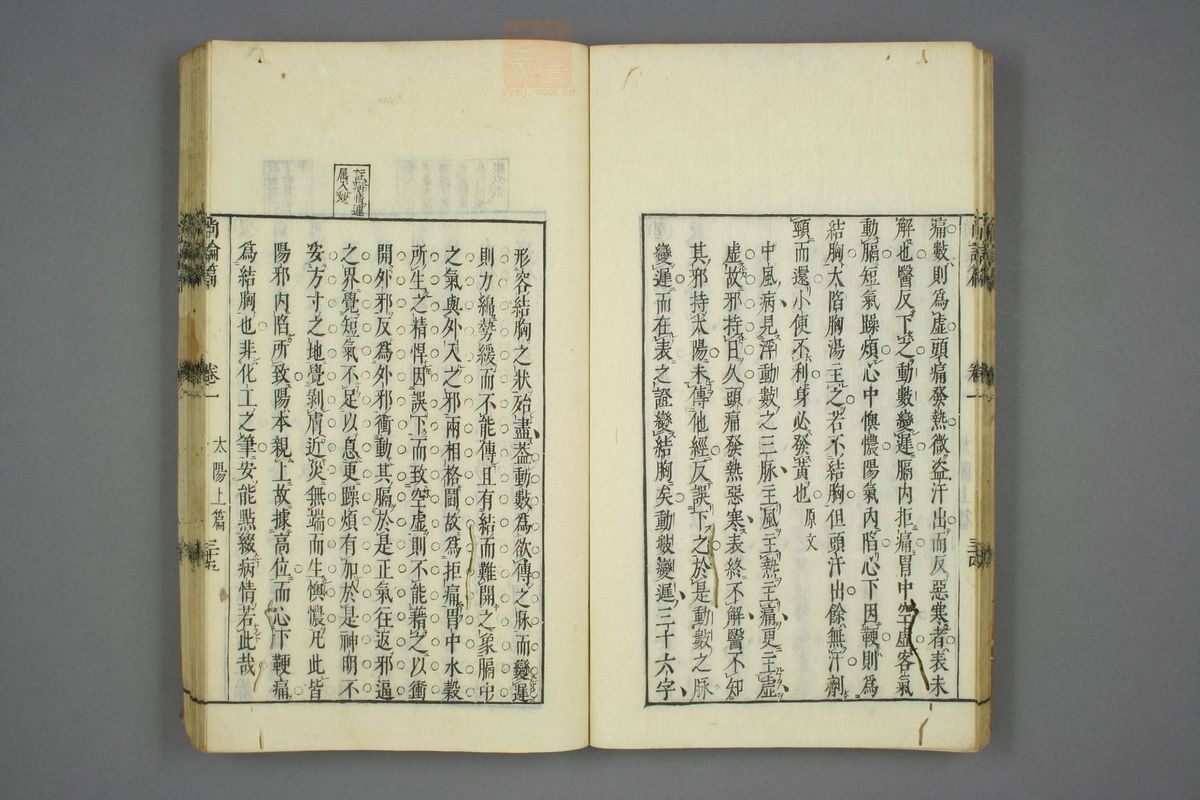 痛數則爲虛頭痛發熱微盗汗出而反惡寒者表未
解也醫反下之動數變遲膈内拒痛胃中空虛客氣
動膈短氣躁煩心中懊憹陽氣内陷心下因鞕則爲
結胸大陷胸湯主之若不結胸但頭汗出餘無汗劑
頸而還小便不利身必發黃也 原文
中風病見浮動數之三脉主風主熱主痛更主虛
虛故邪持日久頭痛發熱惡寒表終不解醫不知
其邪持太陽未傳他經反誤下之於是動數之脉
變遲而在表之證變結胸矣動數變遲三十六字
尚論篇 卷一
形容結胸之狀殆盡葢動數爲欲傳之脉而變遲
則力綿勢緩而不能傳且有結而難開之象膈中
之氣與外入之邪兩相格鬬故爲拒痛胃中水穀
所生之精悍因誤下而致空虛則不能藉之以衝
開外邪反爲外邪衝動其膈於是正氣往返邪逼
之界覺短氣不足以息更躁煩有加於是神明不
安方寸之地覺剝膚近災無端而生懊憹凡此皆
陽邪内陷所致陽本親上故據高位而心下鞕痛
爲結胸也非化工之筆安能點綴病情若此哉
註病情連
属入妙
尚論篇 卷一 太陽上篇 三十五